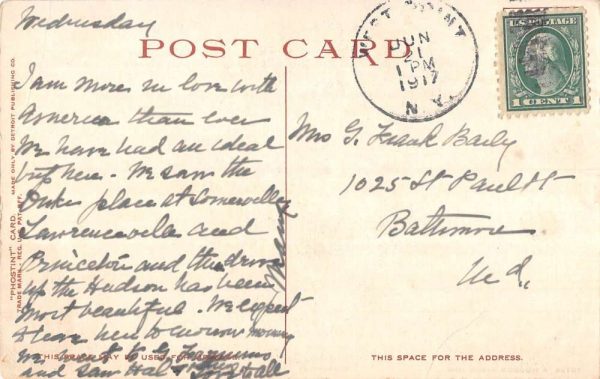 Wednesday
POST CARD.
I am more in love with
America than ever
We have had an ideal
trip here. We saw the
Duke place at Somerville
Lawrenceville and
Princeton and the drive
up the Hudson has been
most beautiful. We expect
to leave here tomorrow morning
we went to
and saw Hal
WEST POINT
JUN
21
1 PM
1917
N.Y.
U.S. POSTAGE
1 CENT 1
Mrs G. Frank Baily
1025 St Paul St
Baltimore
Md.,
"PHOSTINT" CARD. MADE ONLY BY DETROIT PUBLISHING CO.
TRADE MARK REG. U.S. PAT. OFF.
THIS SPACE MAY BE USED FOR
THIS SPACE FOR THE ADDRESS.